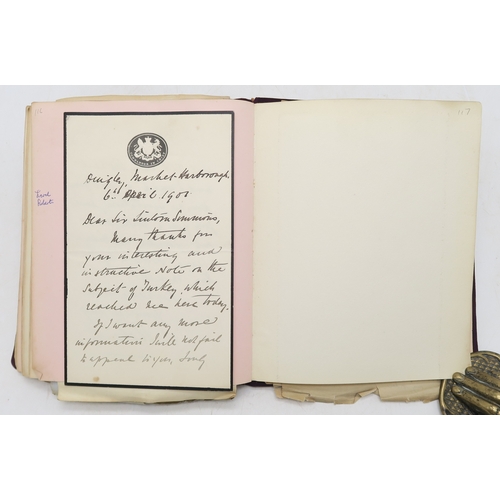 Market Harborough.
6th April 1901
Dear Sir Lintorn Simmons,
Many thanks for
your interesting and
instructive Note on the
subject of Turkey, which
reached me here today.
If I want any more
information I will not fail
to appeal to you,
117